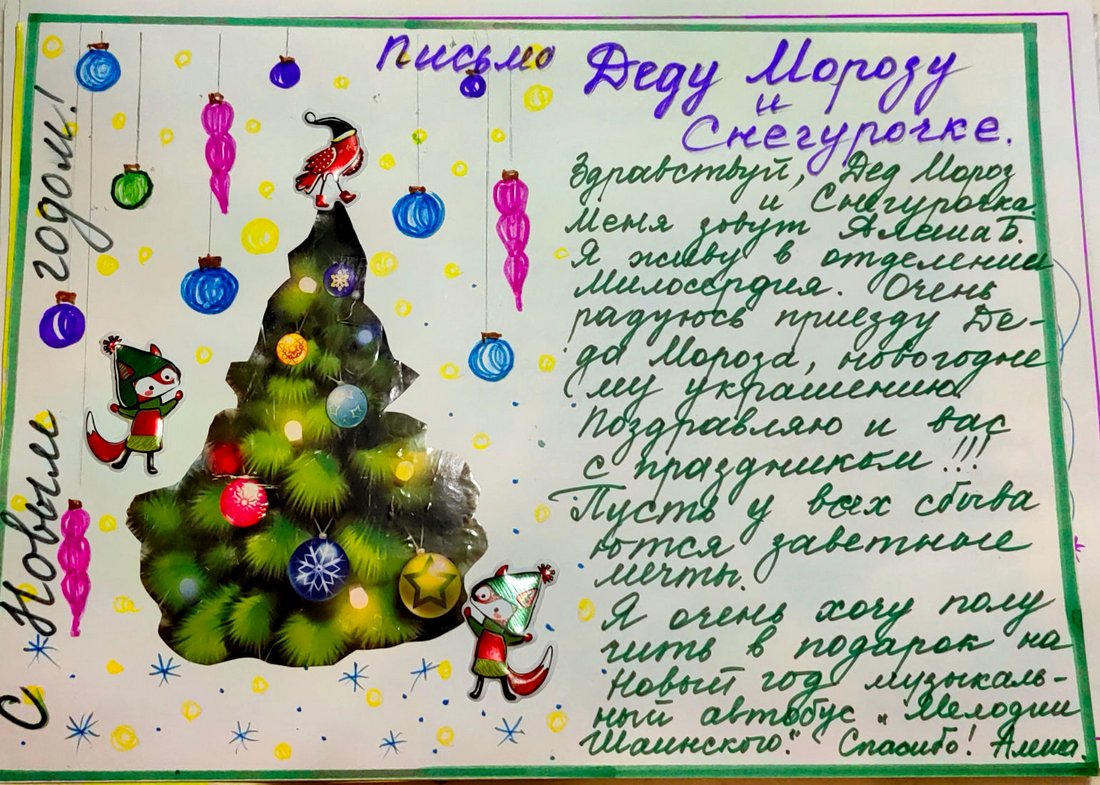 С Новым годом!
Письмо Деду Морозу
и
Снегурочке.
Здравствуй, Дед Мороз
и Снегурочка.
Меня зовут Алеша Б.
Я живу в отделении
Милосердия. Очень
радуюсь приезду Де-
да Мороза, новогодне
му украшению.
Поздравляю и вас
с праздником!!!
Пусть у всех сбыва
ются заветные
мечты.
Я очень хочу полу
чить в подарок на
Новый год музыкаль-
ный автобус "Мелодии
Шаинского." Спасибо! Алеша.